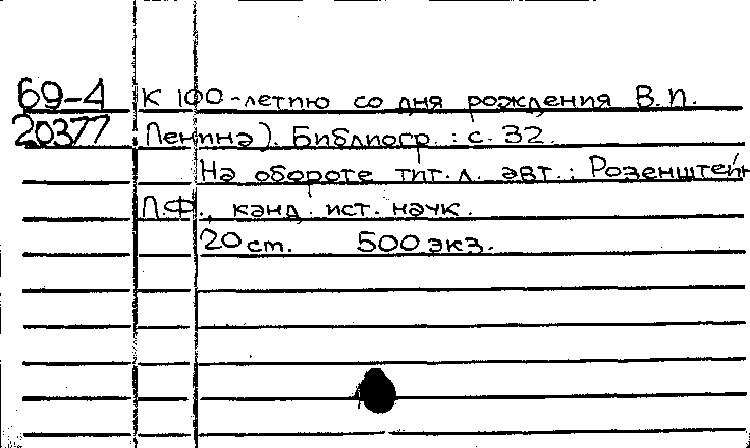 69-4 К 100-летию со дня рождения В.И.
20377 Ленина). Библиогр.: с. 32.
На обороте тит. л. авт.: Розенштейн
Л.Ф., канд. ист. наук.
20 см. 500 экз.